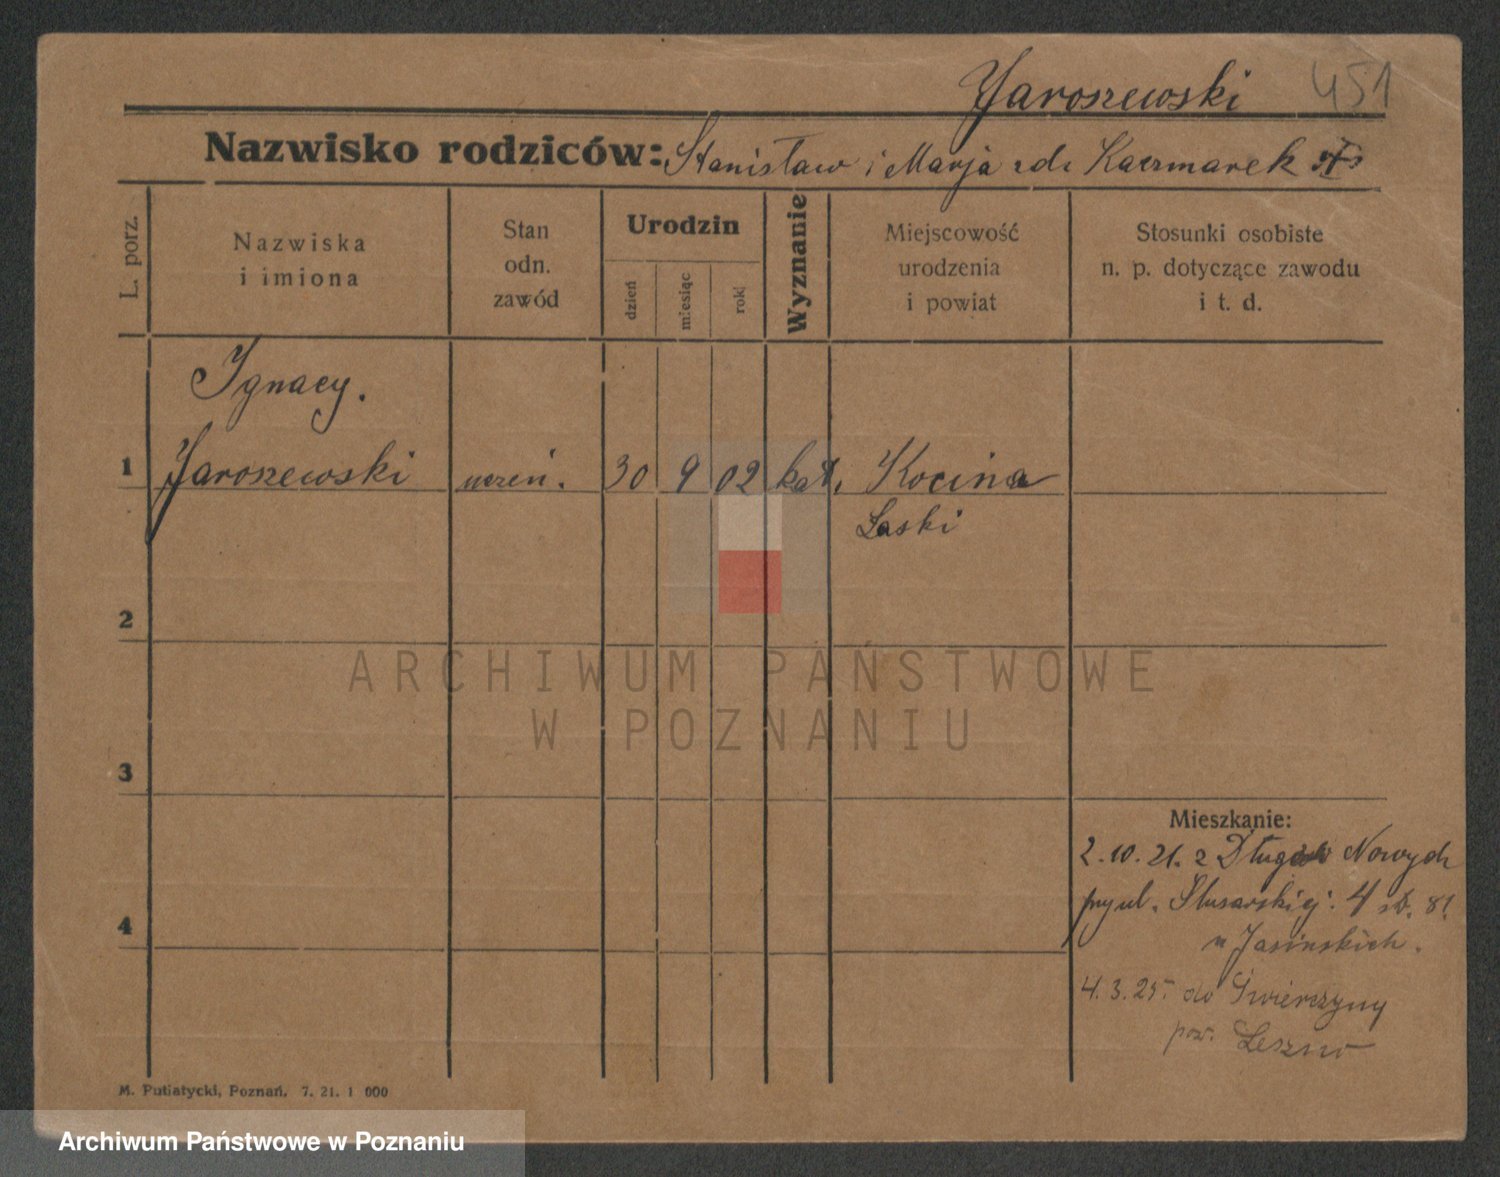 Jaroszewski 451
Nazwisko rodziców: Stanisław i Marja zd. Kaczmarek
L. porz.
Nazwiska
i imiona
Stan
odn.
zawód
Urodzin
dzień
miesiąc
rok
Wyznanie
Miejscowość
urodzenia
i powiat
Stosunki osobiste
n. p. dotyczące zawodu
i t. d.
Ignacy.
1 Jaroszewski uczeń. 30 9 02 kat. Kocina
Laski
2
3
4
Mieszkanie:
2.10.21. z Długich Nowych
przy ul. Ślusarskiej. 4 81
u Jasińskich.
4.3.25. do Świerczyny
pow. Leszno
M. Putiatycki, Poznań. 7. 21. 1 000
ARCHIWUM PAŃSTWOWE
W POZNANIU
Archiwum Państwowe w Poznaniu